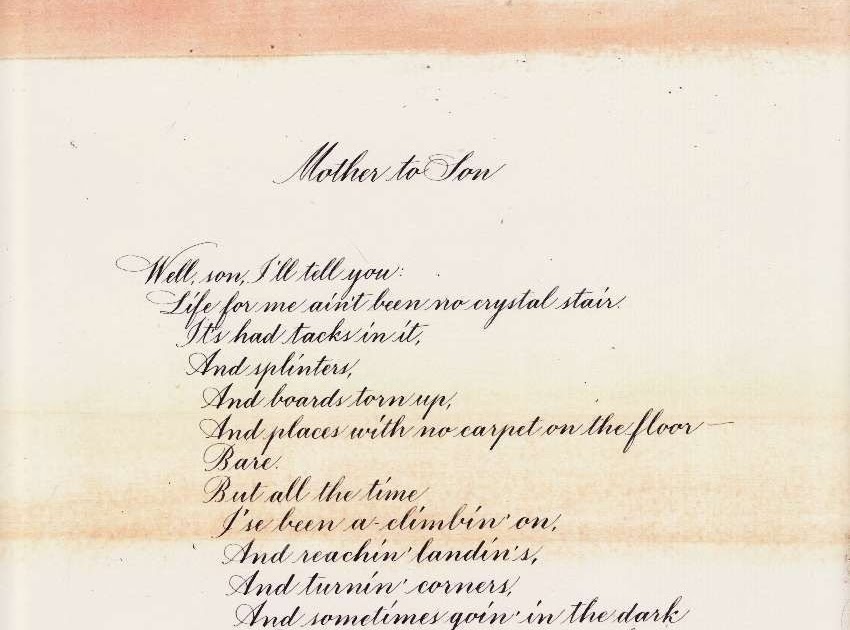 Mother to Son
Well, son, I'll tell you:
Life for me ain't been no crystal stair.
It's had tacks in it,
And splinters,
And boards torn up,
And places with no carpet on the floor—
Bare.
But all the time
I'se been a-climbin' on,
And reachin' landin's,
And turnin' corners,
And sometimes goin' in the dark